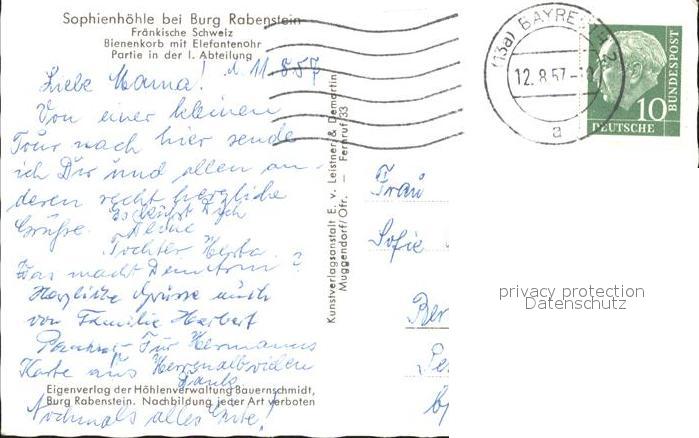 Sophienhöhle bei Burg Rabenstein
Fränkische Schweiz
Bienenkorb mit Elefantenohr
Partie in der I. Abteilung
d. 11.8.57
Liebe Mama!
Von einer kleinen
Tour nach hier sende
ich Dir und allen an-
deren recht herzliche
Grüße. Es küßt Dich
Deine
Tochter Herta.
Was macht ?
Herzliche Grüsse auch
von Familie Herbert
Für Hermanns
Karte aus Herrenalb vielen
Dank
Eigenverlag der Höhlenverwaltung Bauernschmidt,
Burg Rabenstein. Nachbildung jeder Art verboten
Nochmals alles Gute!
Kunstverlagsanstalt E. v. Leistner & Demartin
Muggendorf/Ofr. — Fernruf 33
(13a) BAYREUTH 2
12.8.57
a
10
DEUTSCHE
BUNDESPOST
Frau
Sofie
Ber
privacy protection
Datenschutz